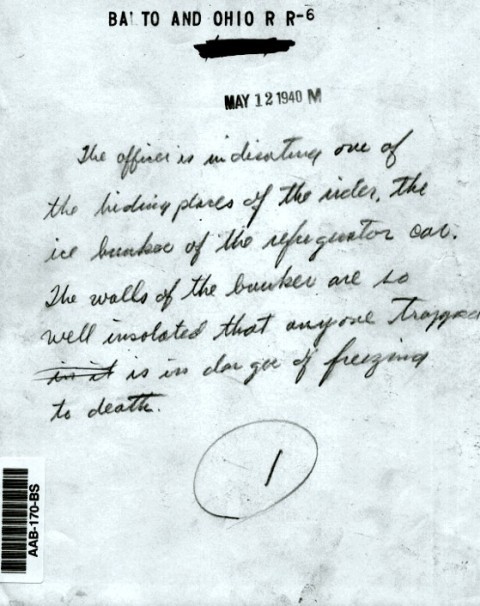 BALTO AND OHIO R R-6
MAY 12 1940 M
The officer is indicating one of
the hiding places of the rider, the
ice bunker of the refrigerator car.
The walls of the bunker are so
well insolated that anyone trapped
in it is in danger of freezing
to death.
1
AAB-170-BS